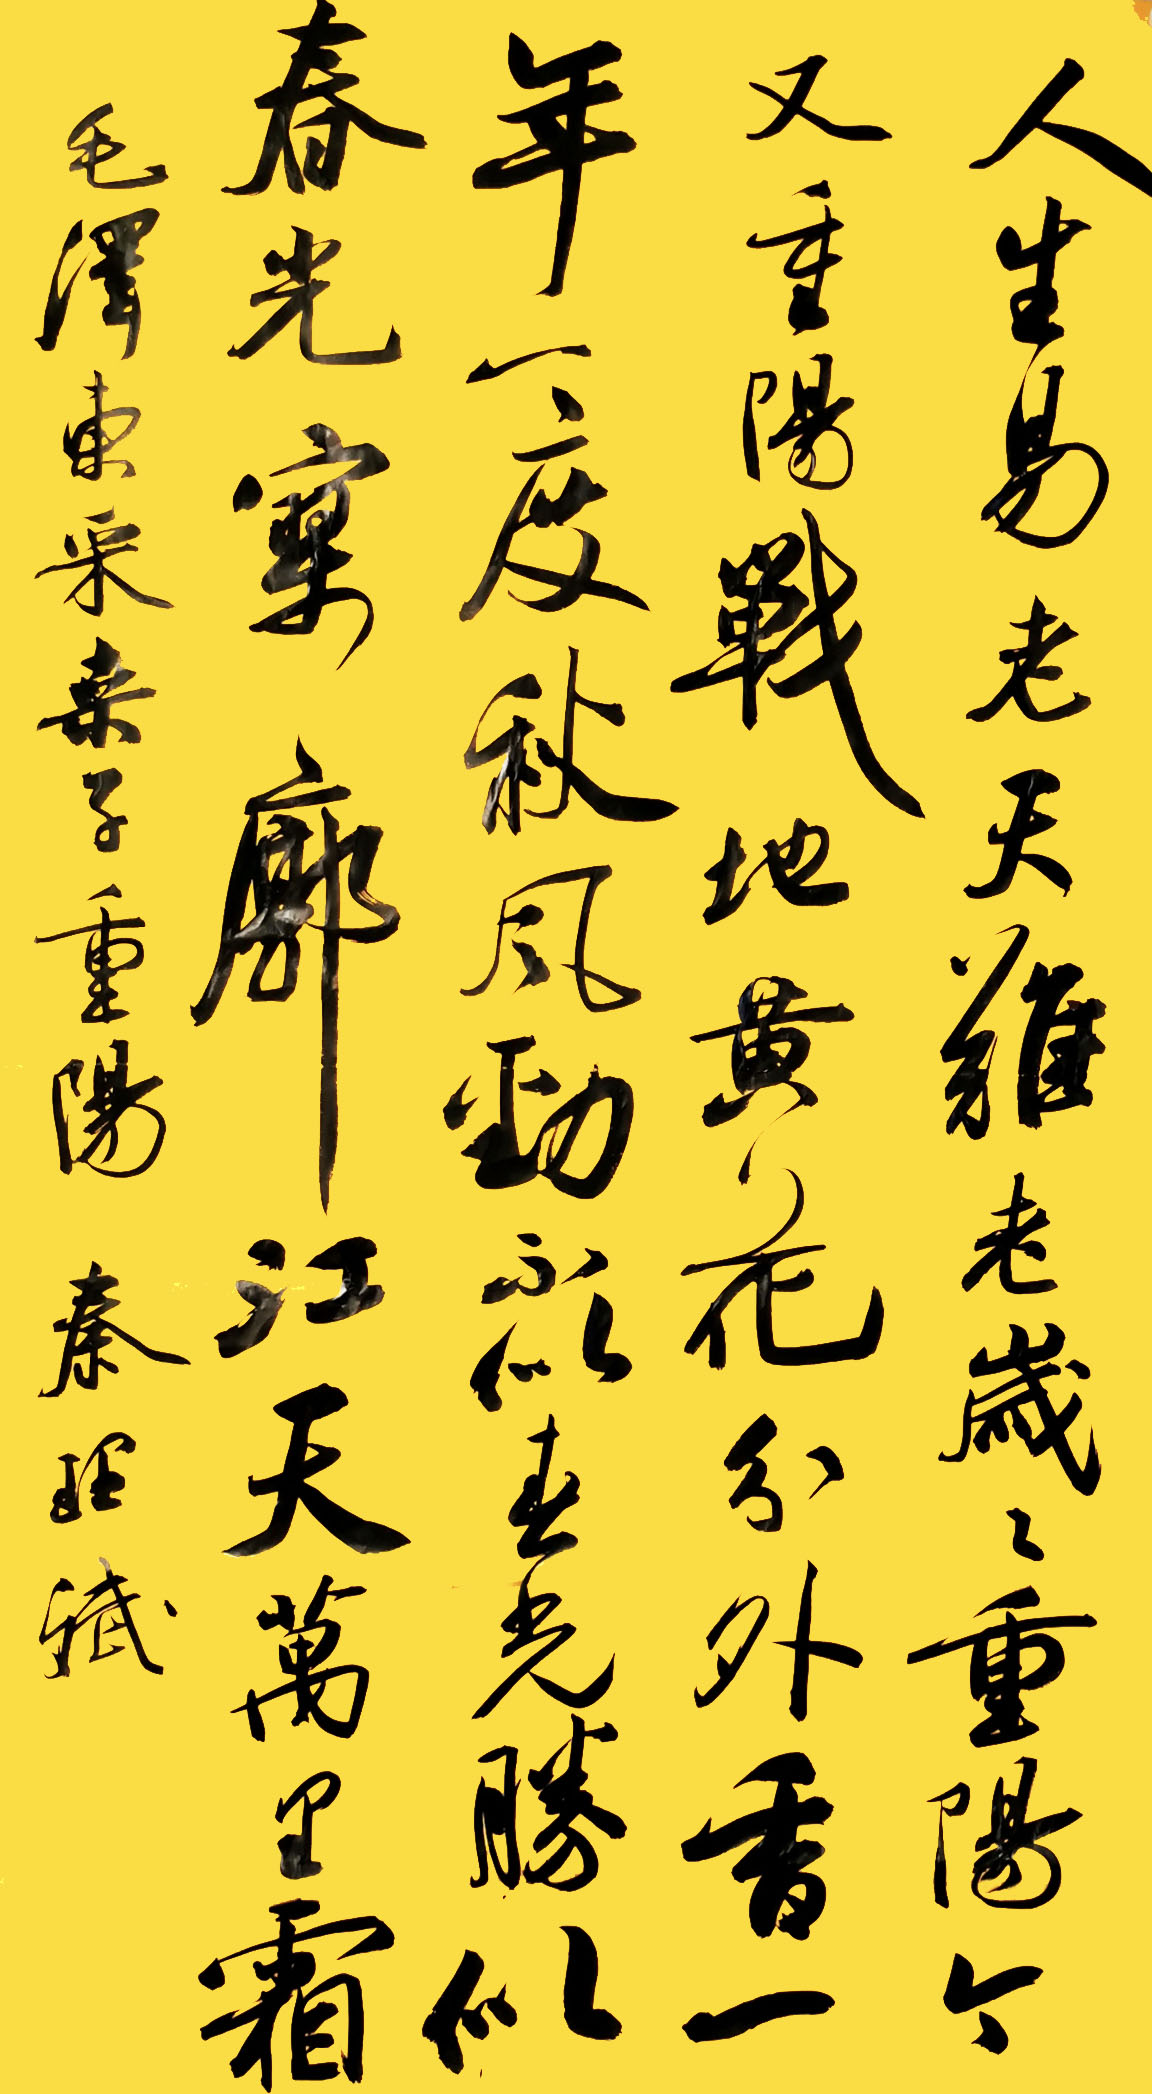 人生易老天難老歲〻重陽今
又重陽戰地黄花分外香一
年一度秋風勁不似春光勝似
春光寥廓江天萬里霜
毛澤東采桑子重陽 秦